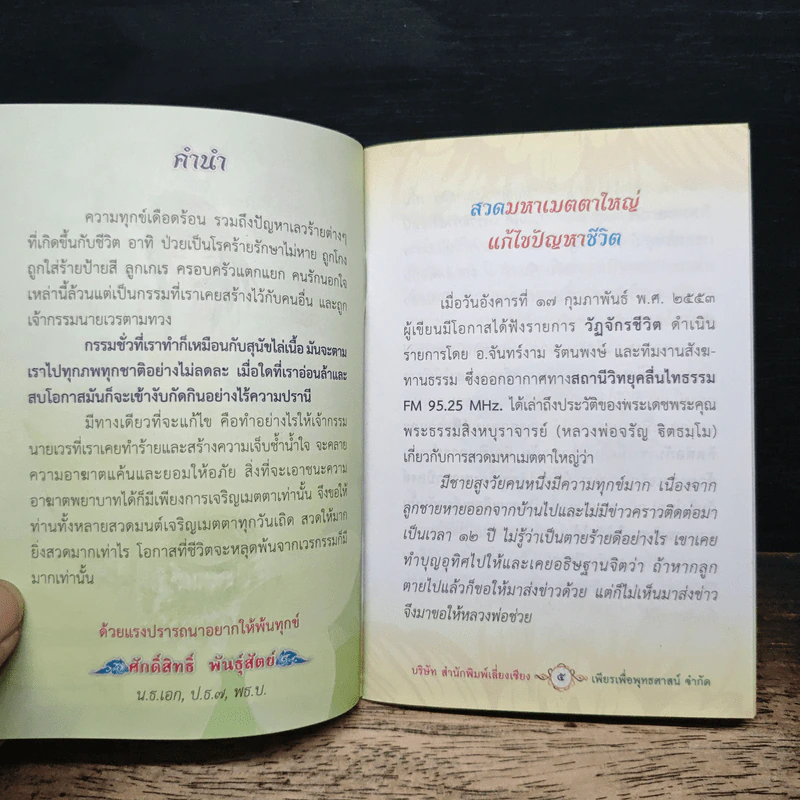 คำนำ
ความทุกข์เดือดร้อน รวมถึงปัญหาเลวร้ายต่างๆ
ที่เกิดขึ้นกับชีวิต อาทิ ป่วยเป็นโรคร้ายรักษาไม่หาย ถูกโกง
ถูกใส่ร้ายป้ายสี ลูกเกเร ครอบครัวแตกแยก คนรักนอกใจ
เหล่านี้ล้วนแต่เป็นกรรมที่เราเคยสร้างไว้กับคนอื่น และถูก
เจ้ากรรมนายเวรตามทวง
กรรมชั่วที่เราทำก็เหมือนกับสุนัขไล่เนื้อ มันจะตาม
เราไปทุกภพทุกชาติอย่างไม่ลดละ เมื่อใดที่เราอ่อนล้าและ
สบโอกาสมันก็จะเข้างับกัดกินอย่างไร้ความปรานี
มีทางเดียวที่จะแก้ไข คือทำอย่างไรให้เจ้ากรรม
นายเวรที่เราเคยทำร้ายและสร้างความเจ็บช้ำน้ำใจ จะคลาย
ความอาฆาตแค้นและยอมให้อภัย สิ่งที่จะเอาชนะความ
อาฆาตพยาบาทได้ก็มีเพียงการเจริญเมตตาเท่านั้น จึงขอให้
ท่านทั้งหลายสวดมนต์เจริญเมตตาทุกวันเถิด สวดให้มาก
ยิ่งสวดมากเท่าไร โอกาสที่ชีวิตจะหลุดพ้นจากเวรกรรมก็มี
มากเท่านั้น
ด้วยแรงปรารถนาอยากให้พ้นทุกข์
ศักดิ์สิทธิ์ พันธุ์สัตย์
น.ธ.เอก, ป.ธ.๗, พธ.บ.
สวดมหาเมตตาใหญ่
แก้ไขปัญหาชีวิต
เมื่อวันอังคารที่ ๑๗ กุมภาพันธ์ พ.ศ. ๒๕๕๓
ผู้เขียนมีโอกาสได้ฟังรายการ วัฏจักรชีวิต ดำเนิน
รายการโดย อ.จันทร์งาม รัตนพงษ์ และทีมงานสังฆ-
ทานธรรม ซึ่งออกอากาศทางสถานีวิทยุคลื่นไทธรรม
FM 95.25 MHz. ได้เล่าถึงประวัติของพระเดชพระคุณ
พระธรรมสิงหบุราจารย์ (หลวงพ่อจรัญ ฐิตธมฺโม)
เกี่ยวกับการสวดมหาเมตตาใหญ่ว่า
มีชายสูงวัยคนหนึ่งมีความทุกข์มาก เนื่องจาก
ลูกชายหายออกจากบ้านไปและไม่มีข่าวคราวติดต่อมา
เป็นเวลา ๑๒ ปี ไม่รู้ว่าเป็นตายร้ายดีอย่างไร เขาเคย
ทำบุญอุทิศไปให้และเคยอธิษฐานจิตว่า ถ้าหากลูก
ตายไปแล้วก็ขอให้มาส่งข่าวด้วย แต่ก็ไม่เห็นมาส่งข่าว
จึงมาขอให้หลวงพ่อช่วย
บริษัท สำนักพิมพ์เลี่ยงเชียง ๕ เพียรเพื่อพุทธศาสน์ จำกัด